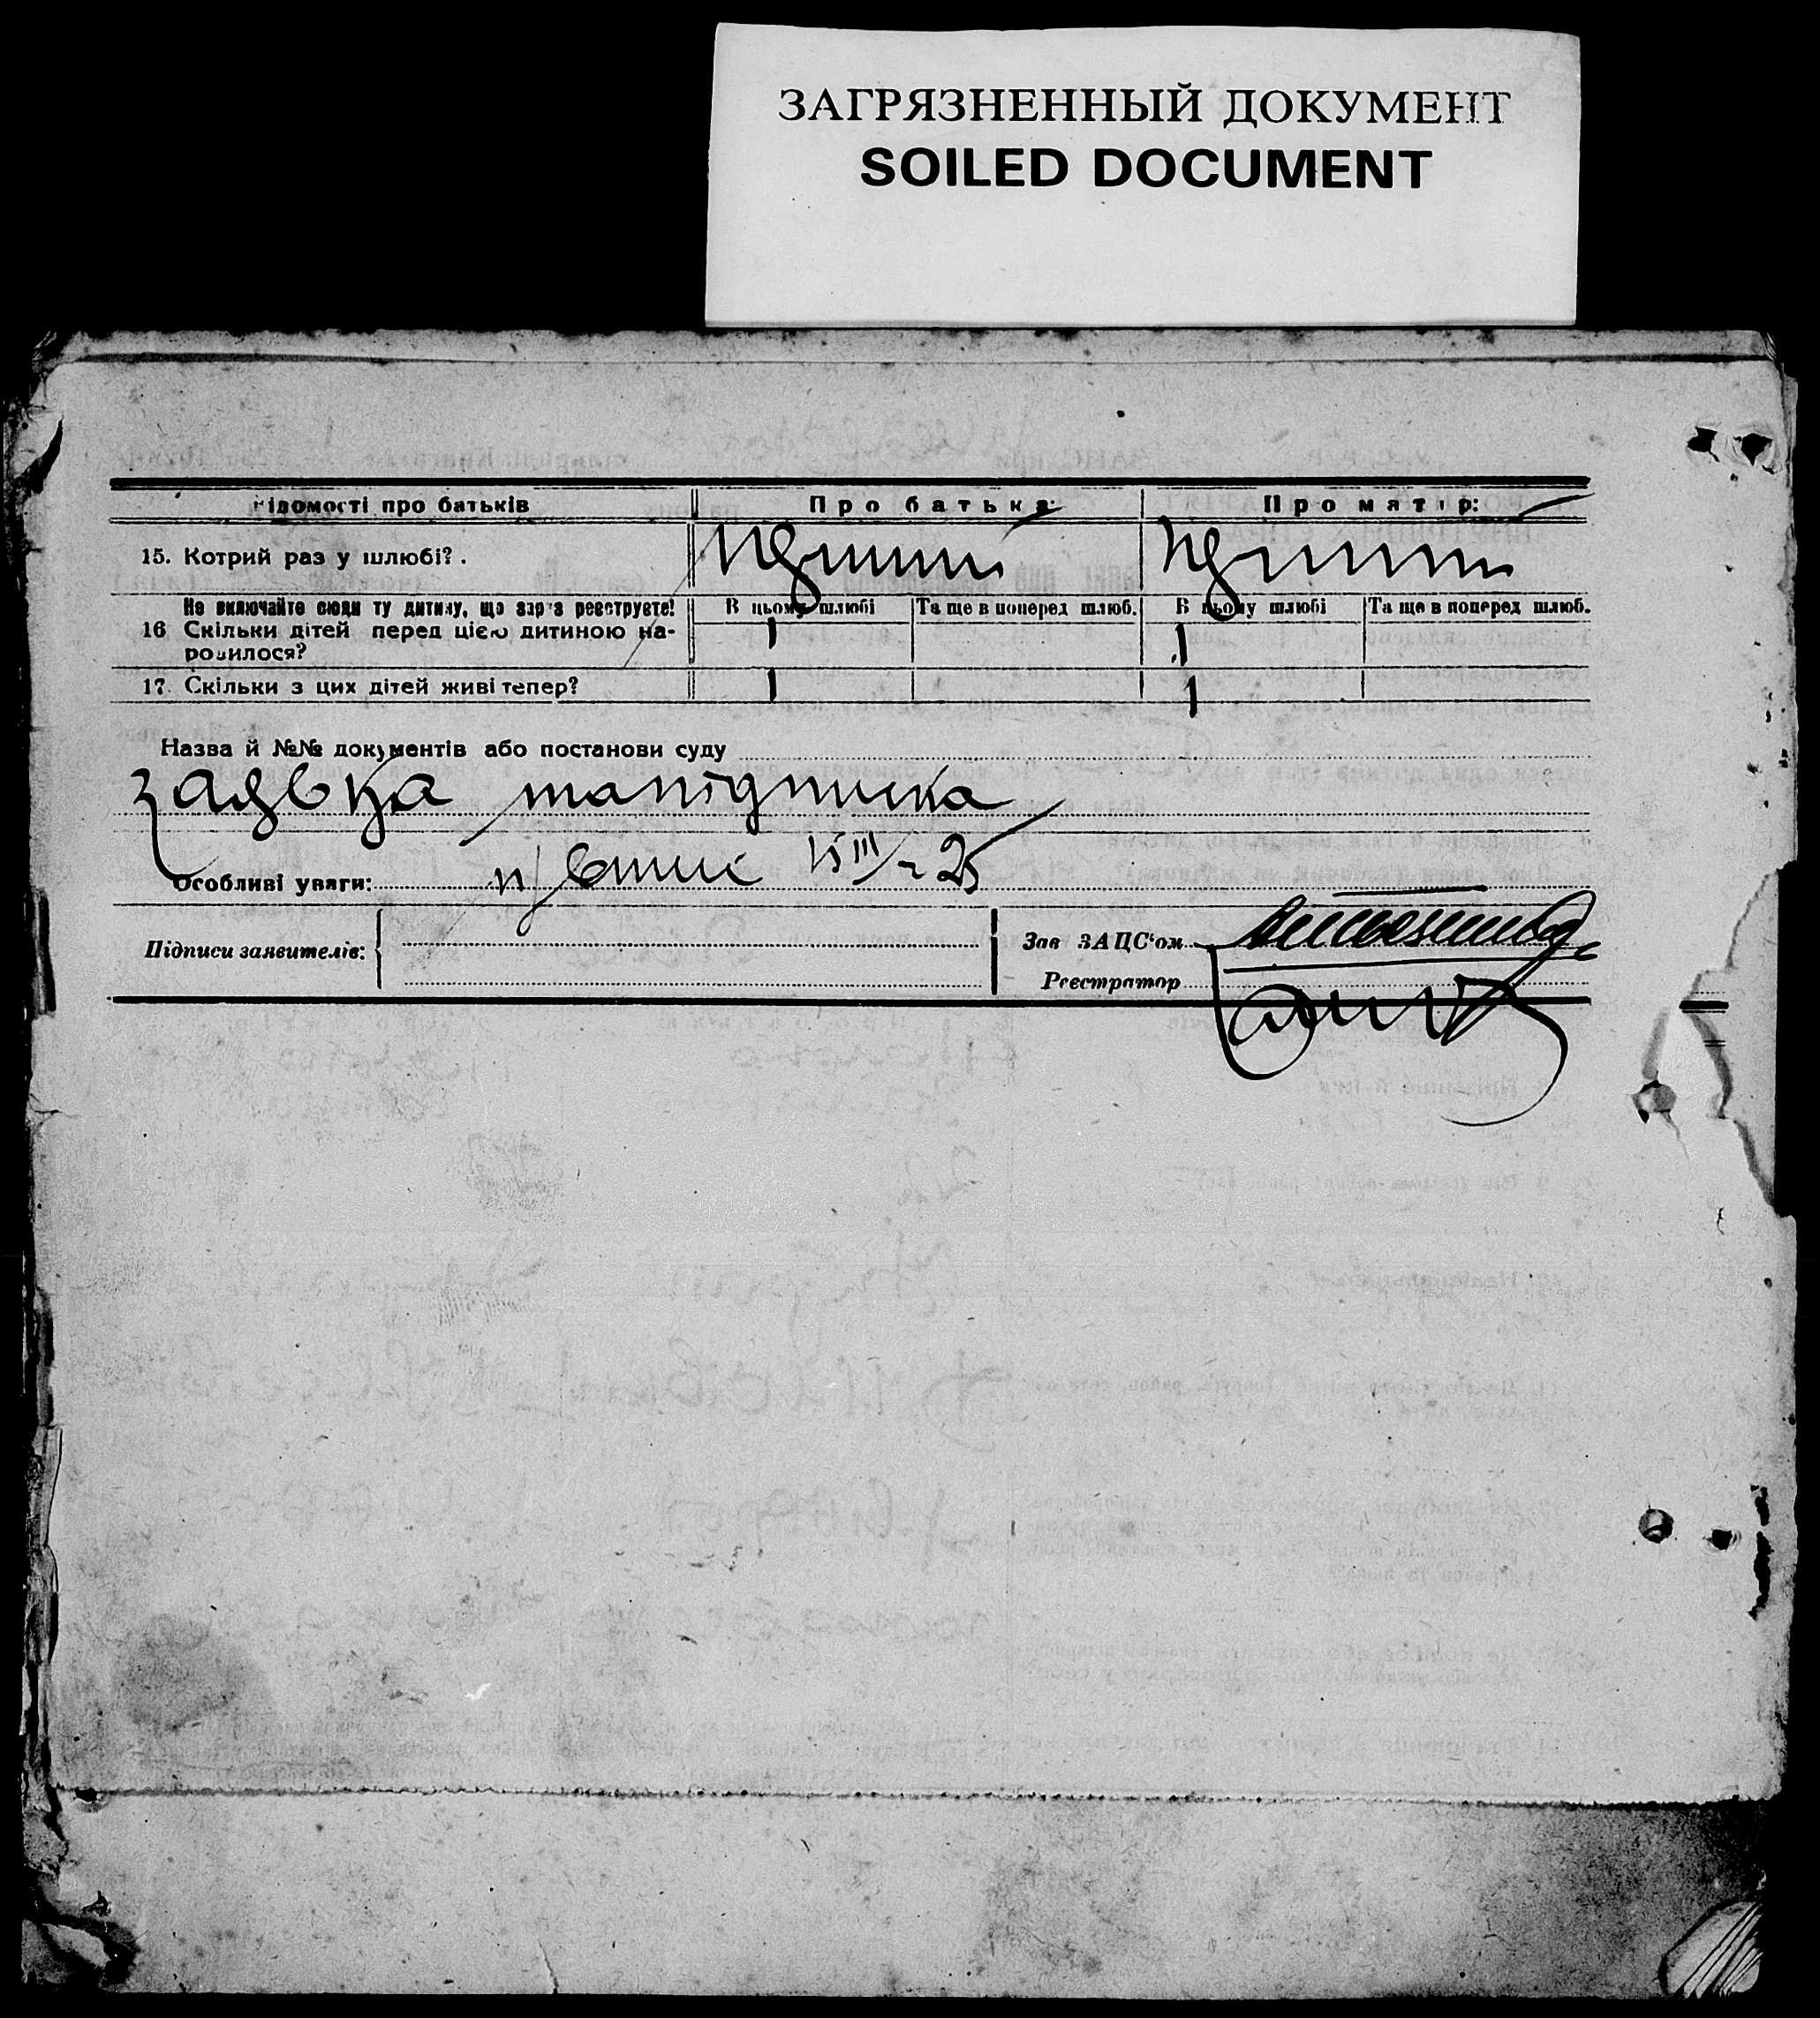 ЗАГРЯЗНЕННЫЙ ДОКУМЕНТ
SOILED DOCUMENT
Відомості про батьків Про батька: Про матір:
15. Котрий раз у шлюбі?. перший перший
Не включайте сюди ту дитину, що зараз реєструєте! В цьому шлюбі Та ще в поперед шлюб. В цьому шлюбі Та ще в поперед шлюб.
16 Скільки дітей перед цією дитиною на-
родилося? 1 1
17. Скільки з цих дітей живі тепер? 1 1
Назва й №№ документів або постанови суду
заявка та підписка
Особливі уваги: 15 III - 25
Підписи заявителів: Зав ЗАЦС'ом
Реєстратор